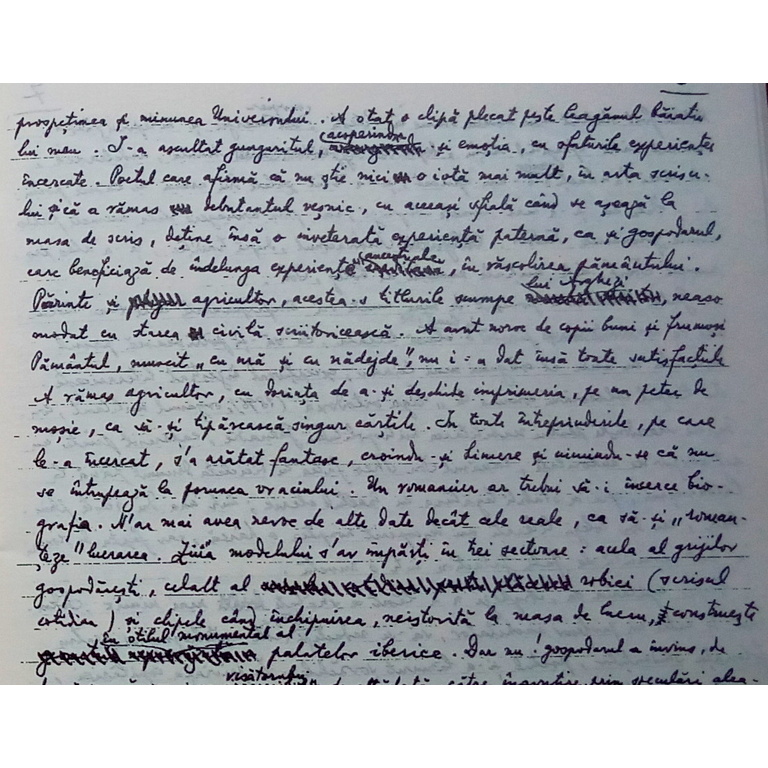 prospețimea și minunea Universului. A stat o clipă plecat peste leagănul băiatu-
lui meu. I-a ascultat gunguritul, acoperindu și emoția, cu sfaturile experienței
încercate. Poetul care afirmă că nu știe nici o iotă mai mult, în arta scrisu-
lui și că a rămas debutantul veșnic, cu aceeași sfială când se așează la
masa de scris, deține însă o inveterată experiență paternă, ca și gospodarul,
care beneficiază de îndelunga experiență ancestrală, în văscolirea pământului.
Părinte și agricultor, acestea-s titlurile scumpe lui Arghezi, neaco-
modat cu starea civilă scriitoricească. A avut noroc de copii buni și frumoși
Pământul, muncit „cu mă și cu nădejde”, nu i-a dat însă toate satisfacțiile
A rămas agricultor, cu dorința de a-și deschide imprimeria, pe un petec de
moșie, ca să-și tipărească singur cărțile. În toate întreprinderile, pe care
le-a încercat, s'a arătat fantasc, croindu-și himere și uimindu-se că nu
se întrupează la porunca vraciului. Un romancier ar trebui să-i încerce bio-
grafia. N'ar mai avea nevoe de alte date decât cele reale, ca să-și „roman-
țeze” lucrarea. Ziua modelului s'ar împărți în trei sectoare: acela al grijilor
gospodărești, celalt al robiei (scrisul
cotidian) și clipele când închipuirea, neistovită la masa de lucru, construește
în stilul monumental al
palatelor iberice. Dar nu! gospodarul a învins, de
visătorului
prin speculări alea-